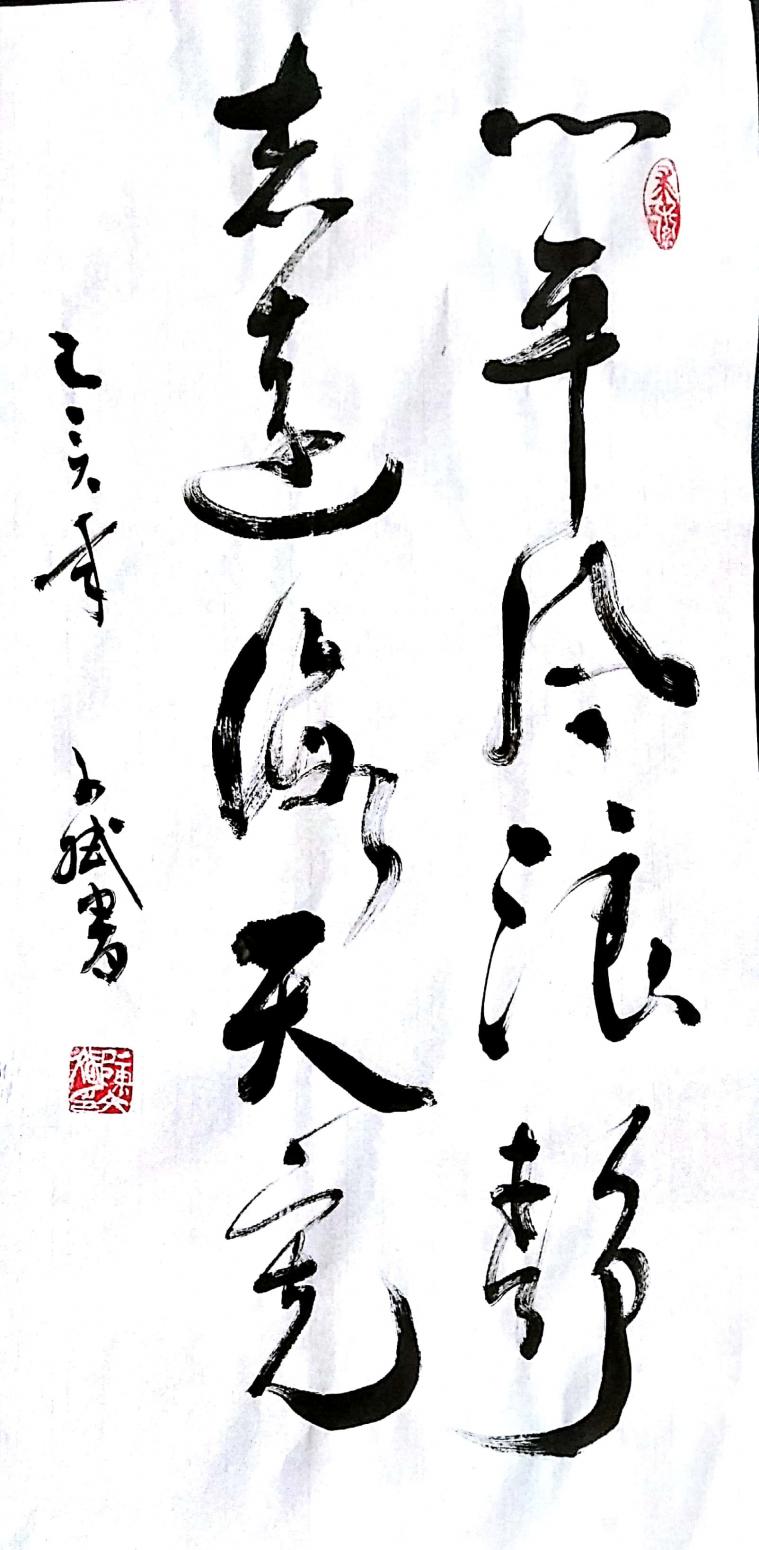 心平风浪静
志远海天宽
己亥年 文斌书